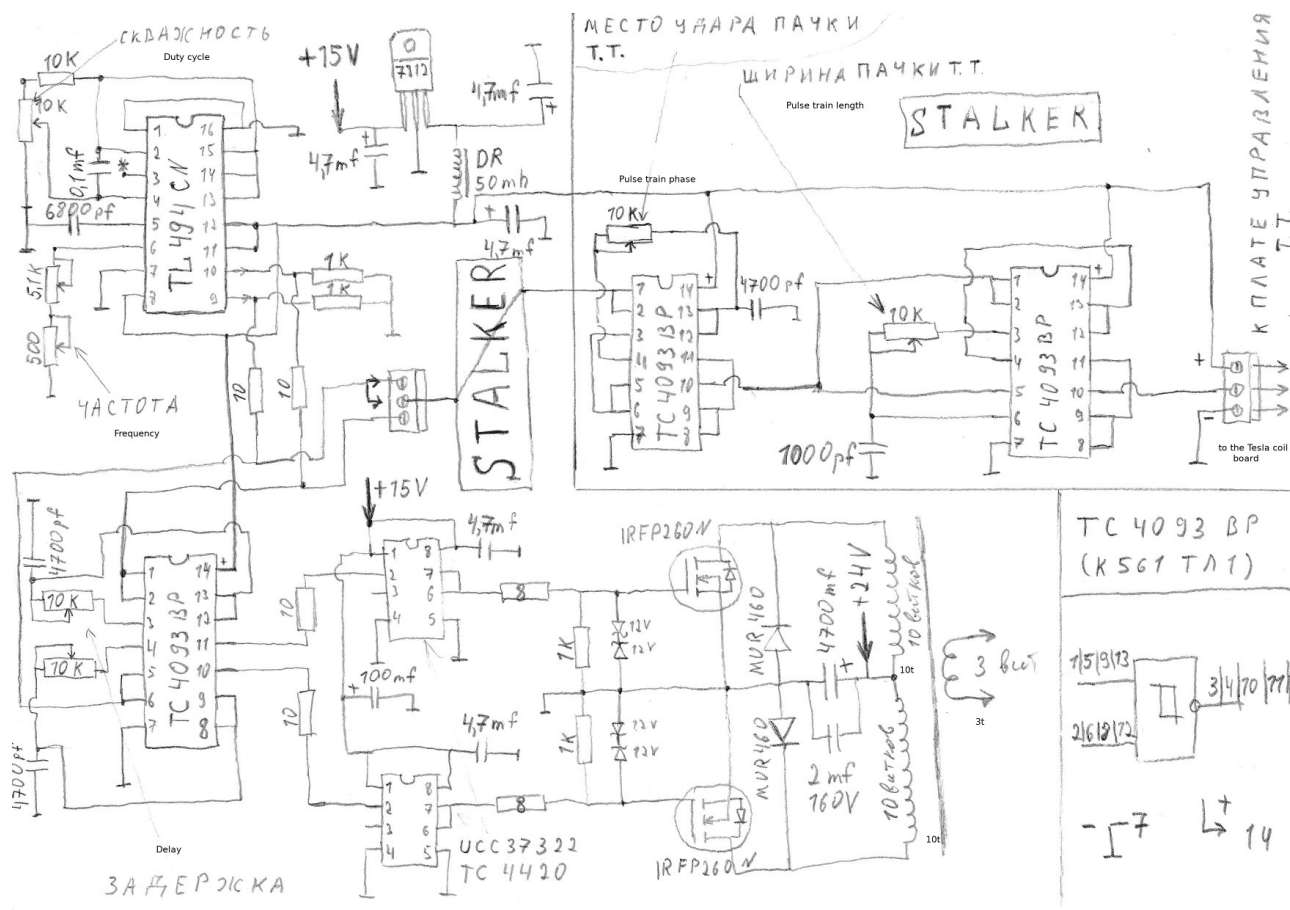 СКВАЖНОСТЬ
Duty cycle
10K
10K
+15V
7812
4,7mf
4,7mf
0,1mf
*
6800pf
TL 494 CN
1 2 3 4 5 6 7 8
16 15 14 13 12 11 10 9
DR
50mh
4,7mf
5,1K
500
ЧАСТОТА
Frequency
1K
1K
10
10
STALKER
МЕСТО УДАРА ПАЧКИ
Т.Т.
ШИРИНА ПАЧКИ Т.Т.
Pulse train length
STALKER
Pulse train phase
10K
4700pf
+
TC 4093 BP
1 2 3 4 5 6 7
14 13 12 11 10 9 8
10K
1000pf
+
TC 4093 BP
1 2 3 4 5 6 7
14 13 12 11 10 9 8
К ПЛАТЕ УПРАВЛЕНИЯ
Т.Т.
+
-
to the Tesla coil
board
4700pf
10K
10K
4700pf
+
TC 4093 BP
1 2 3 4 5 6 7
14 13 12 11 10 9 8
Delay
ЗАДЕРЖКА
10
10
+15V
4,7mf
1 2 3 4
8 7 6 5
100mf
4,7mf
1 2 3 4
8 7 6 5
UCC37322
TC 4420
8
8
1K
1K
12V
12V
12V
12V
IRFP260N
IRFP260N
MUR460
MUR460
4700mf
+24V
2mf
160V
10 витков
10t
10 витков
10t
3 вит
3t
TC 4093 BP
(К561 ТЛ1)
1/5/9/13
2/6/8/12
3/4/10/11
- 7
+ 14